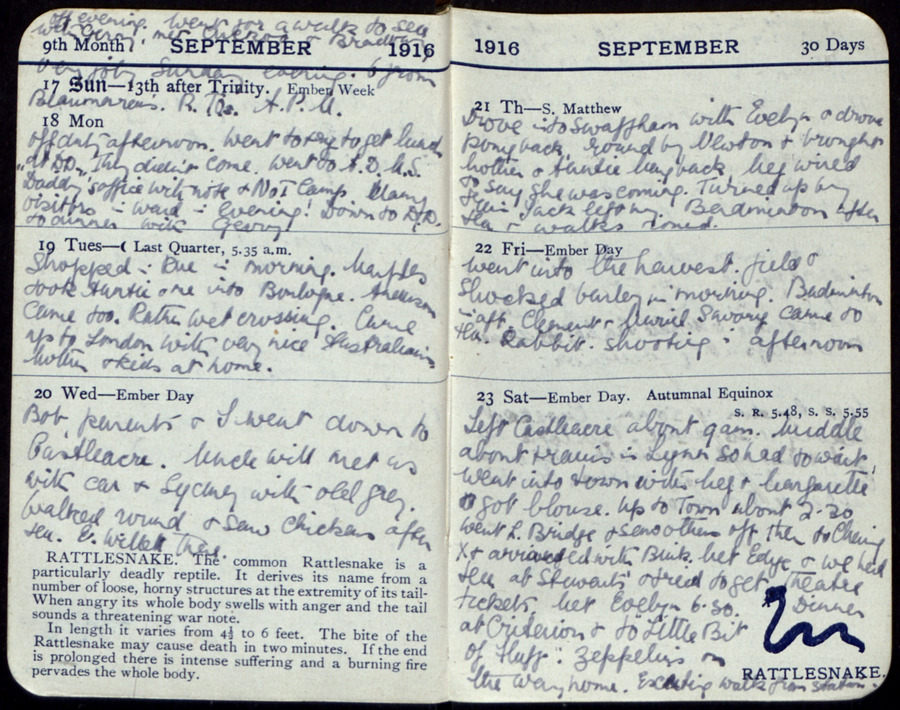 off evening. Went for a walk to see
with Gerry, met
9th Month SEPTEMBER 1916
Very jolly Sunday evening. 6 from
17 Sun—13th after Trinity. Ember Week
R. A.P.M.
18 Mon
off duty afternoon. Went to try to get lunch
at DD. They didn't come. Went to A.D.M.S.
Daddy's office with note & No I Camp. Many
visitors in ward in evening. Down to DD.
to dinner with Gerry
19 Tues—☾ Last Quarter, 5.35 a.m.
Shopped in in morning.
took Auntie & me into Boulogne.
Came too. Rather wet crossing. Came
up to London with very nice Australians
Mother & kids at home.
20 Wed—Ember Day
Bob, parents & I went down to
Castleacre. Uncle Will met us
with car & Sydney with old grey.
Walked round & saw chickens after
tea. E. Willett there.
RATTLESNAKE. The common Rattlesnake is a
particularly deadly reptile. It derives its name from a
number of loose, horny structures at the extremity of its tail-
When angry its whole body swells with anger and the tail
sounds a threatening war note.
In length it varies from 4½ to 6 feet. The bite of the
Rattlesnake may cause death in two minutes. If the end
is prolonged there is intense suffering and a burning fire
pervades the whole body.
1916 SEPTEMBER 30 Days
21 Th—S. Matthew
Drove into Swaffham with Evelyn & drove
pony back, round by Newton & brought
Mother & Auntie back. Meg wired
to say she was coming. Turned up by
Jack left my. Badminton after
tea & walks round.
22 Fri—Ember Day
Went into the harvest field &
shocked barley in morning. Badminton
in aft. Clement & Muriel came to
tea. Rabbit shooting in afternoon
23 Sat—Ember Day. Autumnal Equinox
S. R. 5.48, S. S. 5.55
Left Castleacre about 9am. Muddle
about trains in Lynn so had to wait,
Went into town with Meg & Margarette
& got blouse. Up to Town about 2-20
Went L. Bridge & see others off then to Charing
X & arrived with Bunk. Met Edye & we had
tea at Stewarts & tried to get Theatre
tickets. Met Evelyn 6-30. Dinner
at Criterion & to "Little Bit
of Fluff". Zeppelins on
the way home. Exciting walk from station.
RATTLESNAKE.